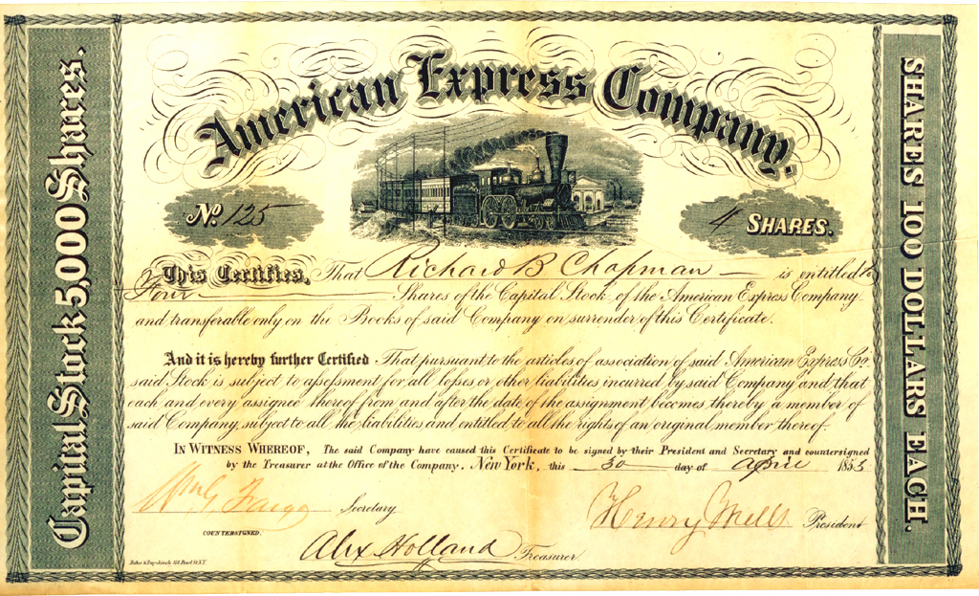 American Express Company.
Capital Stock 5,000 Shares.
SHARES 100 DOLLARS EACH.
No. 125
4 SHARES.
This Certifies, That Richard B Chapman is entitled to
Four Shares of the Capital Stock of the American Express Company
and transferable only on the Books of said Company on surrender of this Certificate.
And it is hereby further Certified. That pursuant to the articles of association of said American Express Co.
said Stock is subject to assessment for all losses or other liabilities incurred by said Company and that
each and every assignee thereof from and after the date of the assignment becomes thereby a member of
said Company, subject to all the liabilities and entitled to all the rights of an original member thereof.
IN WITNESS WHEREOF, The said Company have caused this Certificate to be signed by their President and Secretary and countersigned
by the Treasurer at the Office of the Company. New York, this 30 day of April 1853
Wm G Fargo Secretary
Henry Wells President
COUNTERSIGNED.
Alex Holland Treasurer